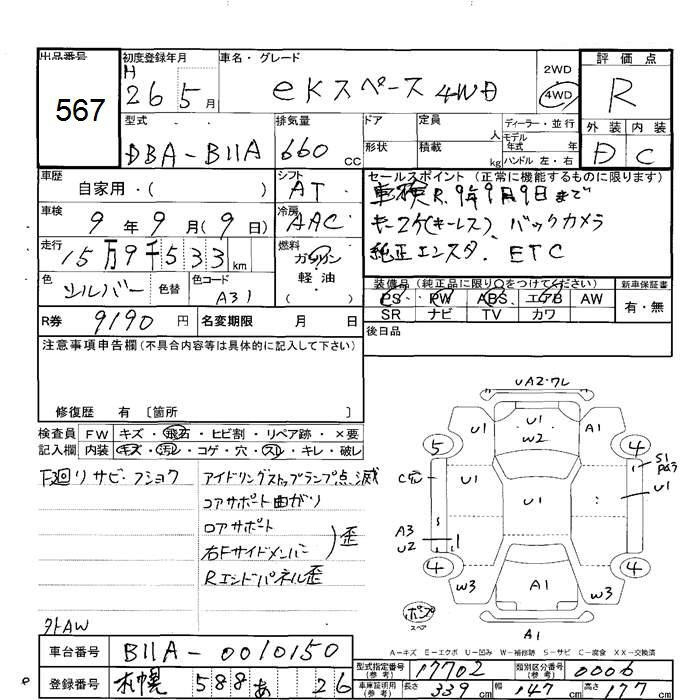 出品番号 初度登録年月 車名・グレード 評価点
567 H 26 5月 eKスペース 4WD 2WD 4WD R
型式 排気量 ドア 定員 人 ディーラー・並行 外装 内装
DBA-B11A 660 cc 形状 積載 kg モデル年式 年式 ハンドル 左・右 D C
車歴 自家用・( ) シフト AT セールスポイント(正常に機能するものに限ります)
車検 9年9月(9日) 冷房 AAC 車検R.9年9月9日まで
走行 15万9千533km 燃料 ガソリン 軽油 ( ) キー2ケ(キーレス) バックカメラ
純正エンスタ. ETC
色 シルバー 色替 色コード A31
装備品(純正品に限り○をつけてください) 新車保証書
PS PW ABS エアB AW 有・無
SR ナビ TV カワ
R券 9190円 名変期限 月 日 後日品
注意事項申告欄(不具合内容等は具体的に記入して下さい)
修復歴 有 〔箇所
検査員 FW キズ・飛石・ヒビ割・リペア跡・×要
記入欄 内装 キズ・汚レ・コゲ・穴・スレ・キレ・破レ
下廻リサビ・フショク
アイドリングストップランプ点滅
コアサポート曲がり
ロアサポート
右Fサイドメンバー 歪
Rエンドパネル歪
外AW
UA2・ワレ
U1 U1 W2 A1
5 4
C穴 U1 U1 S1 U1
A3 U2
4 4
W3 A1 W3
A1
A-キズ E-エクボ U-凹み W-補修跡 S-サビ C-腐食 XX-交換済
車台番号 B11A-0010150
登録番号 札幌 588 あ 26
型式指定番号(参考) 17702 類別区分番号(参考) 0006
車庫証明用(参考) 長さ 339cm 幅 147 高さ 177cm